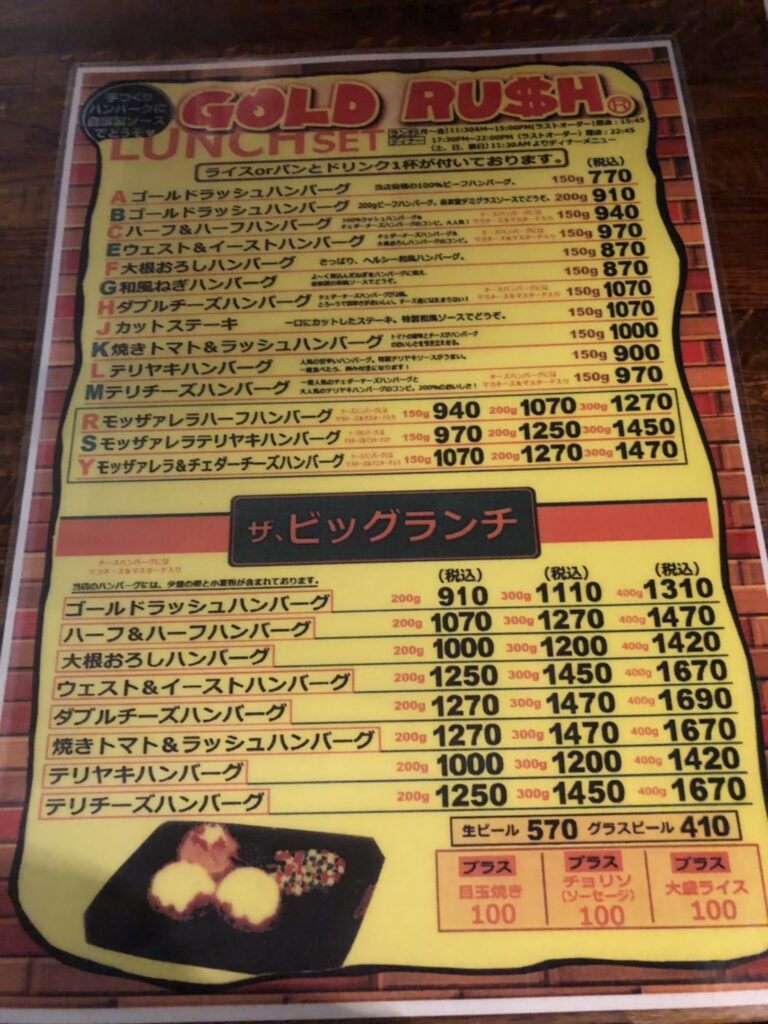 手づくり
ハンバーグに
自家製ソース
でどうぞ
GOLD RU$H®
LUNCH SET
ランチ 月~金)11:30AM~15:00PM(ラストオーダー)閉店:15:45
ディナー 17:30PM~22:00PM (ラストオーダー) 閉店:22:45
(土、日、祭日)11:30AMよりディナーメニュー
ライスorパンとドリンク1杯が付いております。
(税込)
A ゴールドラッシュハンバーグ 当店自慢の100%ビーフハンバーグ。 150g 770
B ゴールドラッシュハンバーグ 200gビーフハンバーグ。自家製デミグラスソースでどうぞ。 200g 910
C ハーフ&ハーフハンバーグ 150g 940
E ウェスト&イーストハンバーグ 150g 970
F 大根おろしハンバーグ さっぱり、ヘルシー和風ハンバーグ。 150g 870
G 和風ねぎハンバーグ 150g 870
H ダブルチーズハンバーグ 150g 1070
J カットステーキ 一口にカットしたステーキ。特製和風ソースでどうぞ。 150g 1070
K 焼きトマト&ラッシュハンバーグ 150g 1000
L テリヤキハンバーグ 人気の甘辛いハンバーグ。特製テリヤキソースがうまい。 150g 900
M テリチーズハンバーグ 150g 970
R モッザァレラハーフハンバーグ 150g 940 200g 1070 300g 1270
S モッザァレラテリヤキハンバーグ 150g 970 200g 1250 300g 1450
Y モッザァレラ&チェダーチーズハンバーグ 150g 1070 200g 1270 300g 1470
ザ、ビッグランチ
チーズハンバーグには
マヨネーズ&マスタード入り
当店のハンバーグには、少量の卵と小麦粉が含まれております。
(税込) (税込) (税込)
ゴールドラッシュハンバーグ 200g 910 300g 1110 400g 1310
ハーフ&ハーフハンバーグ 200g 1070 300g 1270 400g 1470
大根おろしハンバーグ 200g 1000 300g 1200 400g 1420
ウェスト&イーストハンバーグ 200g 1250 300g 1450 400g 1670
ダブルチーズハンバーグ 200g 1270 300g 1470 400g 1690
焼きトマト&ラッシュハンバーグ 200g 1270 300g 1470 400g 1670
テリヤキハンバーグ 200g 1000 300g 1200 400g 1420
テリチーズハンバーグ 200g 1250 300g 1450 400g 1670
生ビール 570 グラスビール 410
プラス
目玉焼き
100
プラス
チョリソ
(ソーセージ)
100
プラス
大盛ライス
100